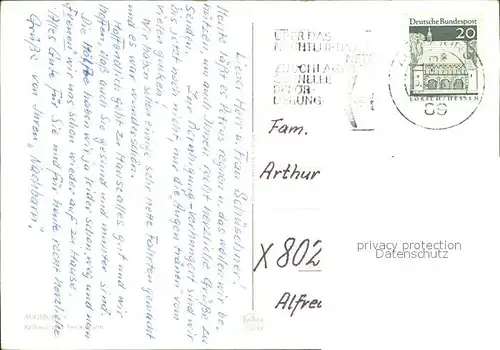 Liebe Herr u. Frau Schwäschner!
Heute läßt es Petrus regnen u. das wollen wir be-
nützen, um auch Ihnen recht herzliche Grüße zu
senden. Zur Beruhigung - verhungert sind wir
bis jetzt auch nicht, nur die "Augen tränen" vom
vielen gucken.
Wir haben schon einige sehr nette Fahrten gemacht
und es war wunderschön.
Hoffentlich geht zu Hause alles gut und wir
hoffen, daß auch Sie gesund und munter sind.
Die Hälfte haben wir ja leider schon weg und nun
freuen wir uns schon wieder auf zu Hause.
Alles Gute für Sie und für heute recht herzliche
Grüße von Ihren "Nachbarn".
AUGSBURG
ÜBER DAS
NACHTLUFTPOST
NETZ
ZUSCHLAG
SCHNELLE
BEFÖR-
DERUNG
Deutsche Bundespost
20
LORSCH/HESSEN
89
Fam.
Arthur
X 802
Alfred
privacy protection
Datenschutz